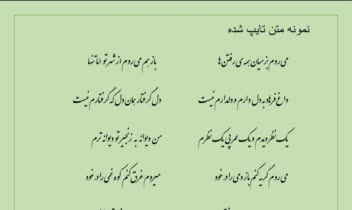 نمونه متن تایپ شده
می روم از میان همه ی رفتن ها بازهم می روم از شهر تو اما تنها
داغ فرهاد به دل دارم و دلدارم نیست دل گرفتار همان دل که گرفتارم نیست
یک نظر دیدم و یک عمر پی یک نظرم من دیوانه به زنجیر تو دیوانه ترم
می روم گریه کنم باز دمی راد خود میروم غرق کنم کوه غمی راد خود